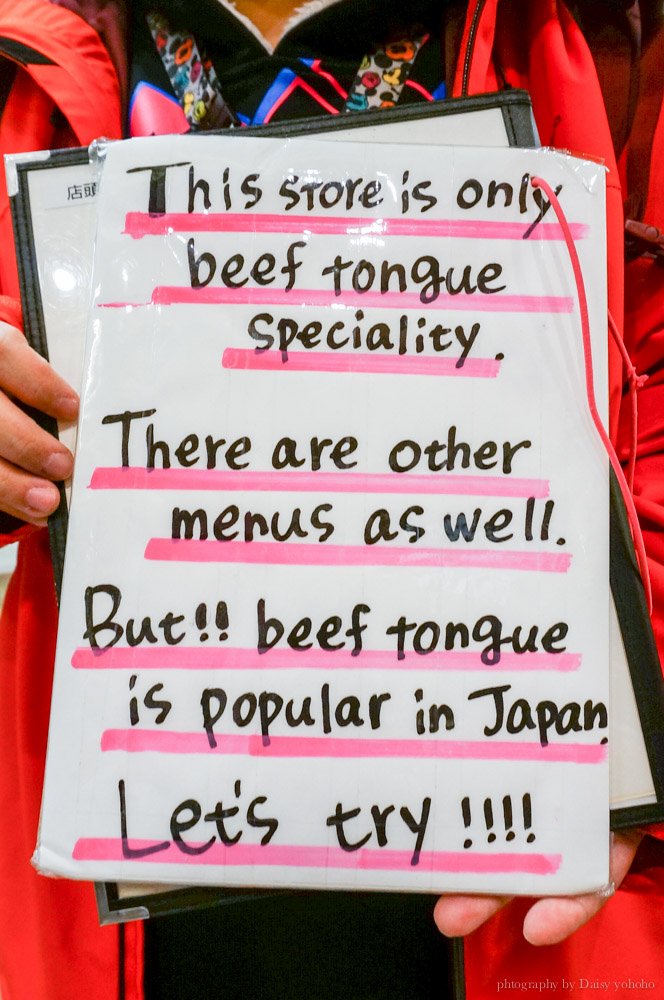 店頭
This store is only
beef tongue
speciality.
There are other
menus as well.
But!! beef tongue
is popular in Japan.
Let's try !!!!
photography by Daisy yohoho